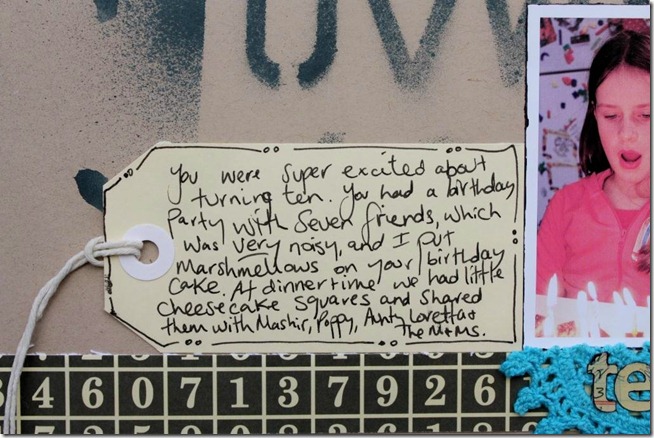 You were super excited about
turning ten. You had a birthday
Party with Seven friends, which
was very noisy, and I put
Marshmellows on your birthday
Cake. At dinnertime we had little
cheesecake squares and Shared
them with Poppy, Aunty Loretta &
The M&Ms.
4 6 0 7 1 3 7 9 2 6
te